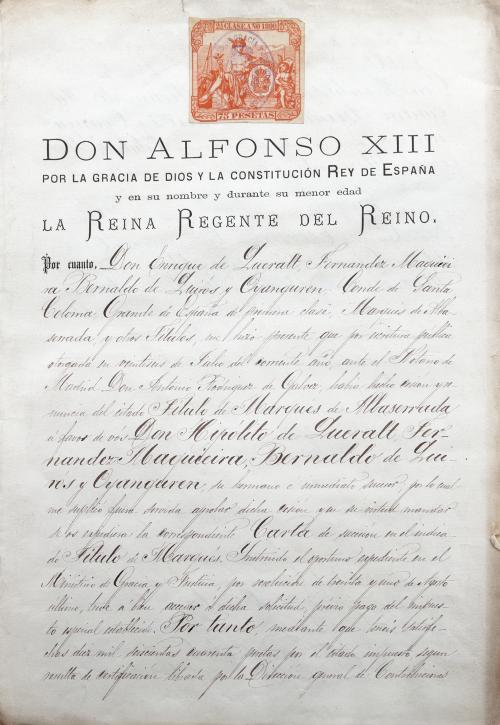 2ª CLASE AÑO 1890
75 PESETAS
DON ALFONSO XIII
POR LA GRACIA DE DIOS Y LA CONSTITUCIÓN REY DE ESPAÑA
y en su nombre y durante su menor edad
LA REINA REGENTE DEL REINO.
Por cuanto, Don Enrique de Queralt, Fernandez Maquiei
ra, Bernaldo de Quiros y Oyanguren, Conde de Santa
Coloma, Grande de España de primera clase, Marqués de Alba
serrada y otros Títulos, me hizo presente que por escritura pública
otorgada en veintiseis de Julio del corriente año, ante el Notario de
Madrid Don Antonio Rodriguez de Galvez, había hecho cesion y re
nuncia del citado Título de Marqués de Albaserrada
á favor de vos Don Hipólito de Queralt, Fer
nandez Maquieira, Bernaldo de Qui
ros y Oyanguren, su hermano é inmediato sucesor, por lo cual
me suplicó fuera servida aprobar dicha cesion y en su virtud mandar
se os expidiera la correspondiente Carta de sucesion en el indica
do Título de Marqués. Instruido el oportuno expediente en el
Ministerio de Gracia y Justicia, por resolucion de treinta y uno de Agosto
último, tuve á bien acceder á dicha solicitud, prévio pago del impues
to especial establecido. Por tanto, mediante á que habeis satisfe
cho diez mil doscientas cuarenta pesetas por el citado impuesto segun
resulta de certificacion librada por la Direccion general de Contribuciones